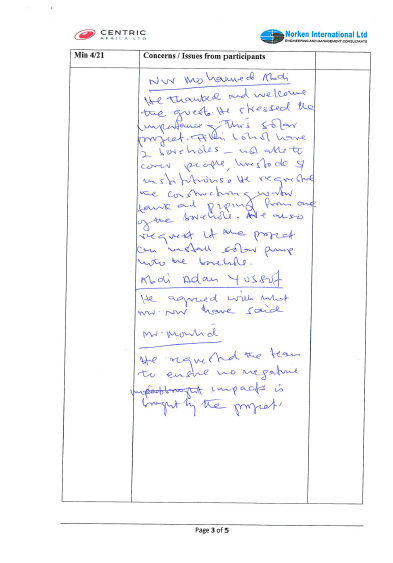 CENTRIC
AFRICA LTD
Norken International Ltd
ENGINEERING AND MANAGEMENT CONSULTANTS
Min 4/21
Concerns / Issues from participants
Mohamed Abdi
He thanked and welcome
the guests. He stressed the
importance of this solar
project. have
2 boreholes – not able to
cover people, livestock &
institutions. He requested
the construction of water
tank and piping from one
of the borehole. He also
request if the project
can install solar pump
into the borehole.
Abdi Adan Yussuf
He agreed with what
have said
Mr.
He requested the team
to ensure no negative
impacts is
brought by the project.
Page 3 of 5